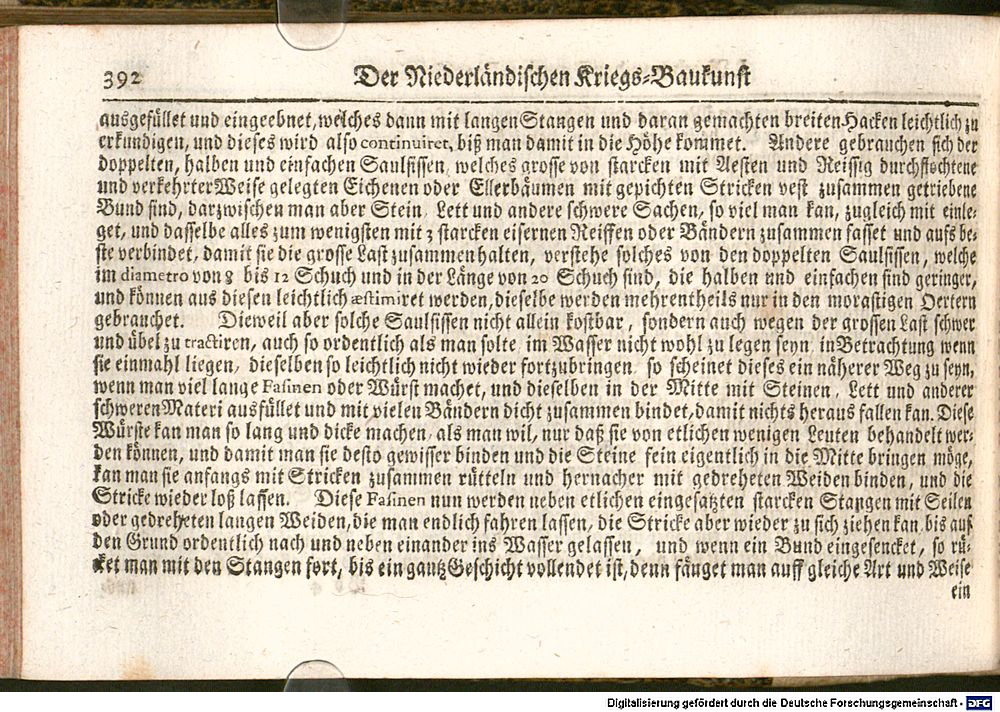 392 Der Niederländischen Kriegs-Baukunst
ausgefüllet und eingeebnet, welches dann mit langen Stangen und daran gemachten breiten Hacken leichtlich zu
erkundigen, und dieses wird also continuiret, biß man damit in die Höhe kommet. Andere gebrauchen sich der
doppelten, halben und einfachen Saulsissen, welches grosse von starcken mit Aesten und Reissig durchflochtene
und verkehrter Weise gelegten Eichenen oder Ellerbäumen mit gepichten Stricken vest zusammen getriebene
Bund sind, darzwischen man aber Stein, Lett und andere schwere Sachen, so viel man kan, zugleich mit einle-
get, und dasselbe alles zum wenigsten mit 3 starcken eisernen Reiffen oder Bändern zusammen fasset und aufs be-
ste verbindet, damit sie die grosse Last zusammen halten, verstehe solches von den doppelten Saulsissen, welche
im diametro von 8 bis 12 Schuch und in der Länge von 20 Schuch sind, die halben und einfachen sind geringer,
und können aus diesen leichtlich æstimiret werden, dieselbe werden mehrentheils nur in den morastigen Oertern
gebrauchet. Dieweil aber solche Saulsissen nicht allein kostbar, sondern auch wegen der grossen Last schwer
und übel zu tractiren, auch so ordentlich als man solte im Wasser nicht wohl zu legen seyn, in Betrachtung wenn
sie einmahl liegen, dieselben so leichtlich nicht wieder fortzubringen, so scheinet dieses ein näherer Weg zu seyn,
wenn man viel lange Fasinen oder Würst machet, und dieselben in der Mitte mit Steinen, Lett und anderer
schweren Materi ausfüllet und mit vielen Bändern dicht zusammen bindet, damit nichts heraus fallen kan. Diese
Würste kan man so lang und dicke machen, als man wil, nur daß sie von etlichen wenigen Leuten behandelt wer-
den können, und damit man sie desto gewisser binden und die Steine fein eigentlich in die Mitte bringen möge,
kan man sie anfangs mit Stricken zusammen rütteln und hernacher mit gedreheten Weiden binden, und die
Stricke wieder loß lassen. Diese Fasinen nun werden neben etlichen eingesatzten starcken Stangen mit Seilen
oder gedreheten langen Weiden, die man endlich fahren lassen, die Stricke aber wieder zu sich ziehen kan, bis auf
den Grund ordentlich nach und neben einander ins Wasser gelassen, und wenn ein Bund eingesencket, so rü-
cket man mit den Stangen fort, bis ein gantz Geschicht vollendet ist, denn fänget man auff gleiche Art und Weise
ein
Digitalisierung gefördert durch die Deutsche Forschungsgemeinschaft - DFG